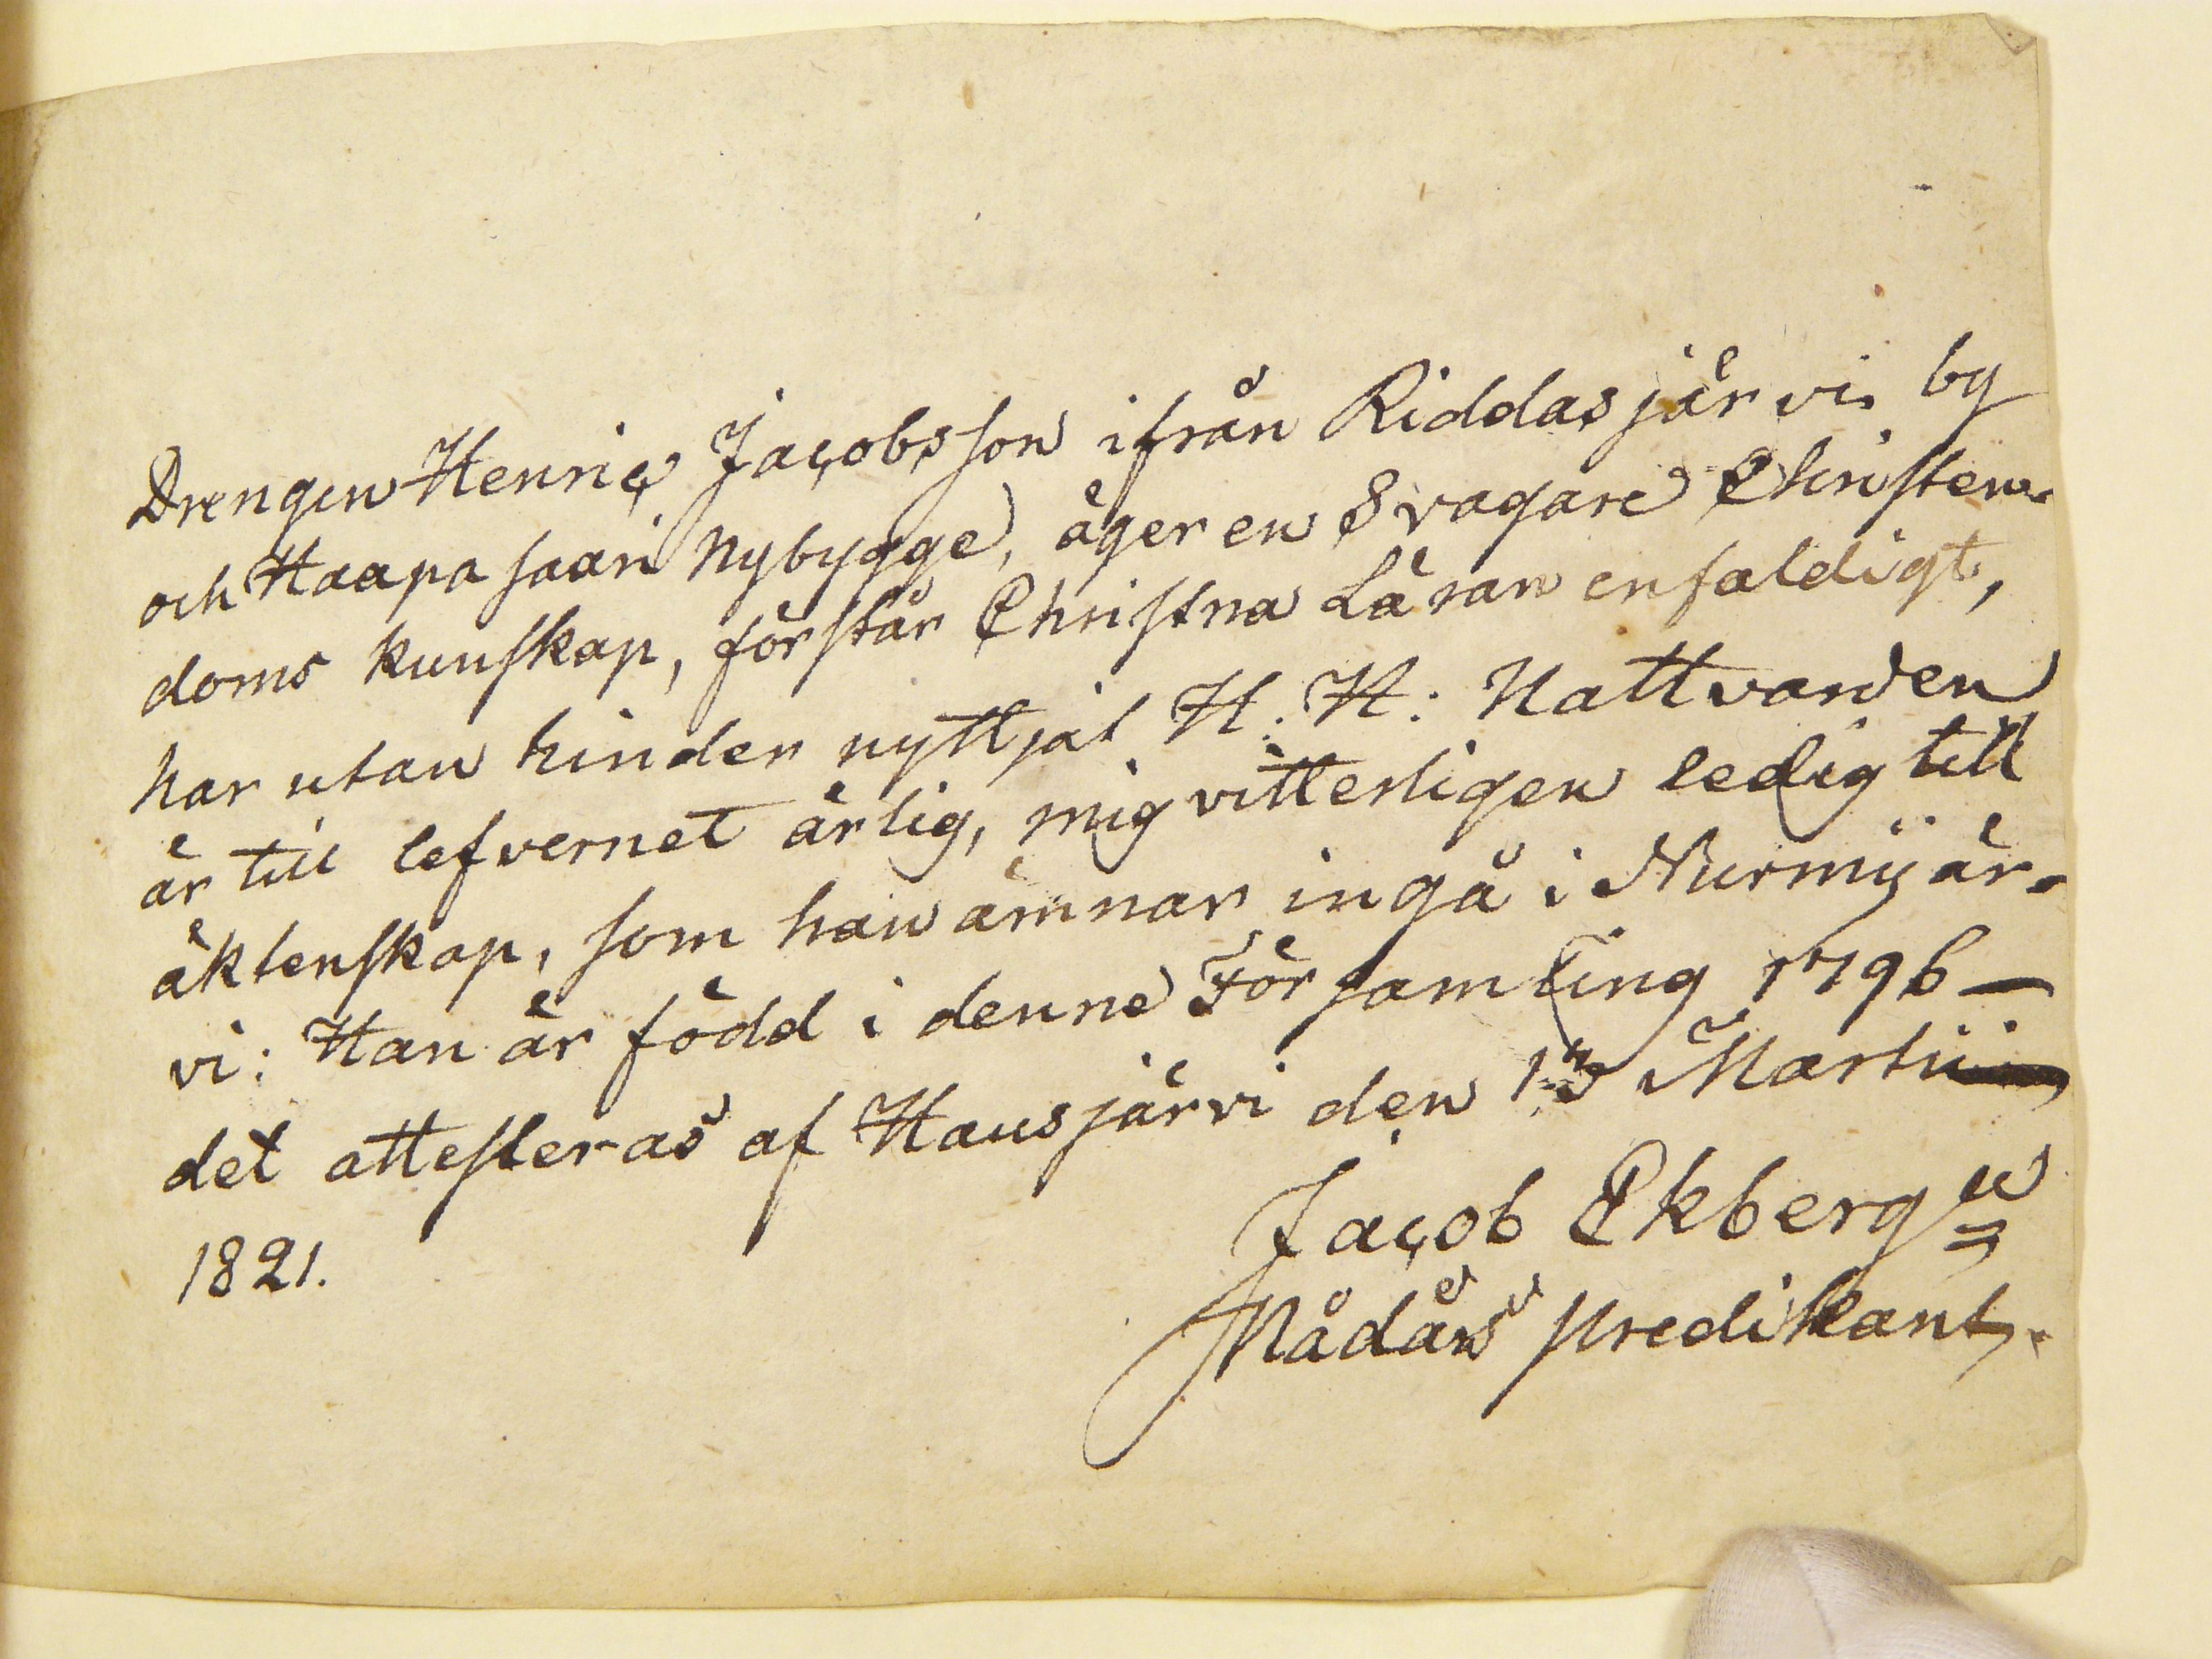 Drengen Henric Jacobsson ifrån Riddasjärvi by
och Haapasaari Nybygge, äger en Svagare Christen-
doms kunskap, förstår Christna Läran enfaldigt,
har utan hinder nyttjat H. H: Nattvarden
är till lefvernet ärlig, mig vitterligen ledig till
äktenskap, som han ämnar ingå i Nurmijär-
vi: Han är född i denne Församling 1796 —
det attesteras af Hausjärvi den 13 Martii
1821.
Jacob Ekberg
Nådårs predikant.